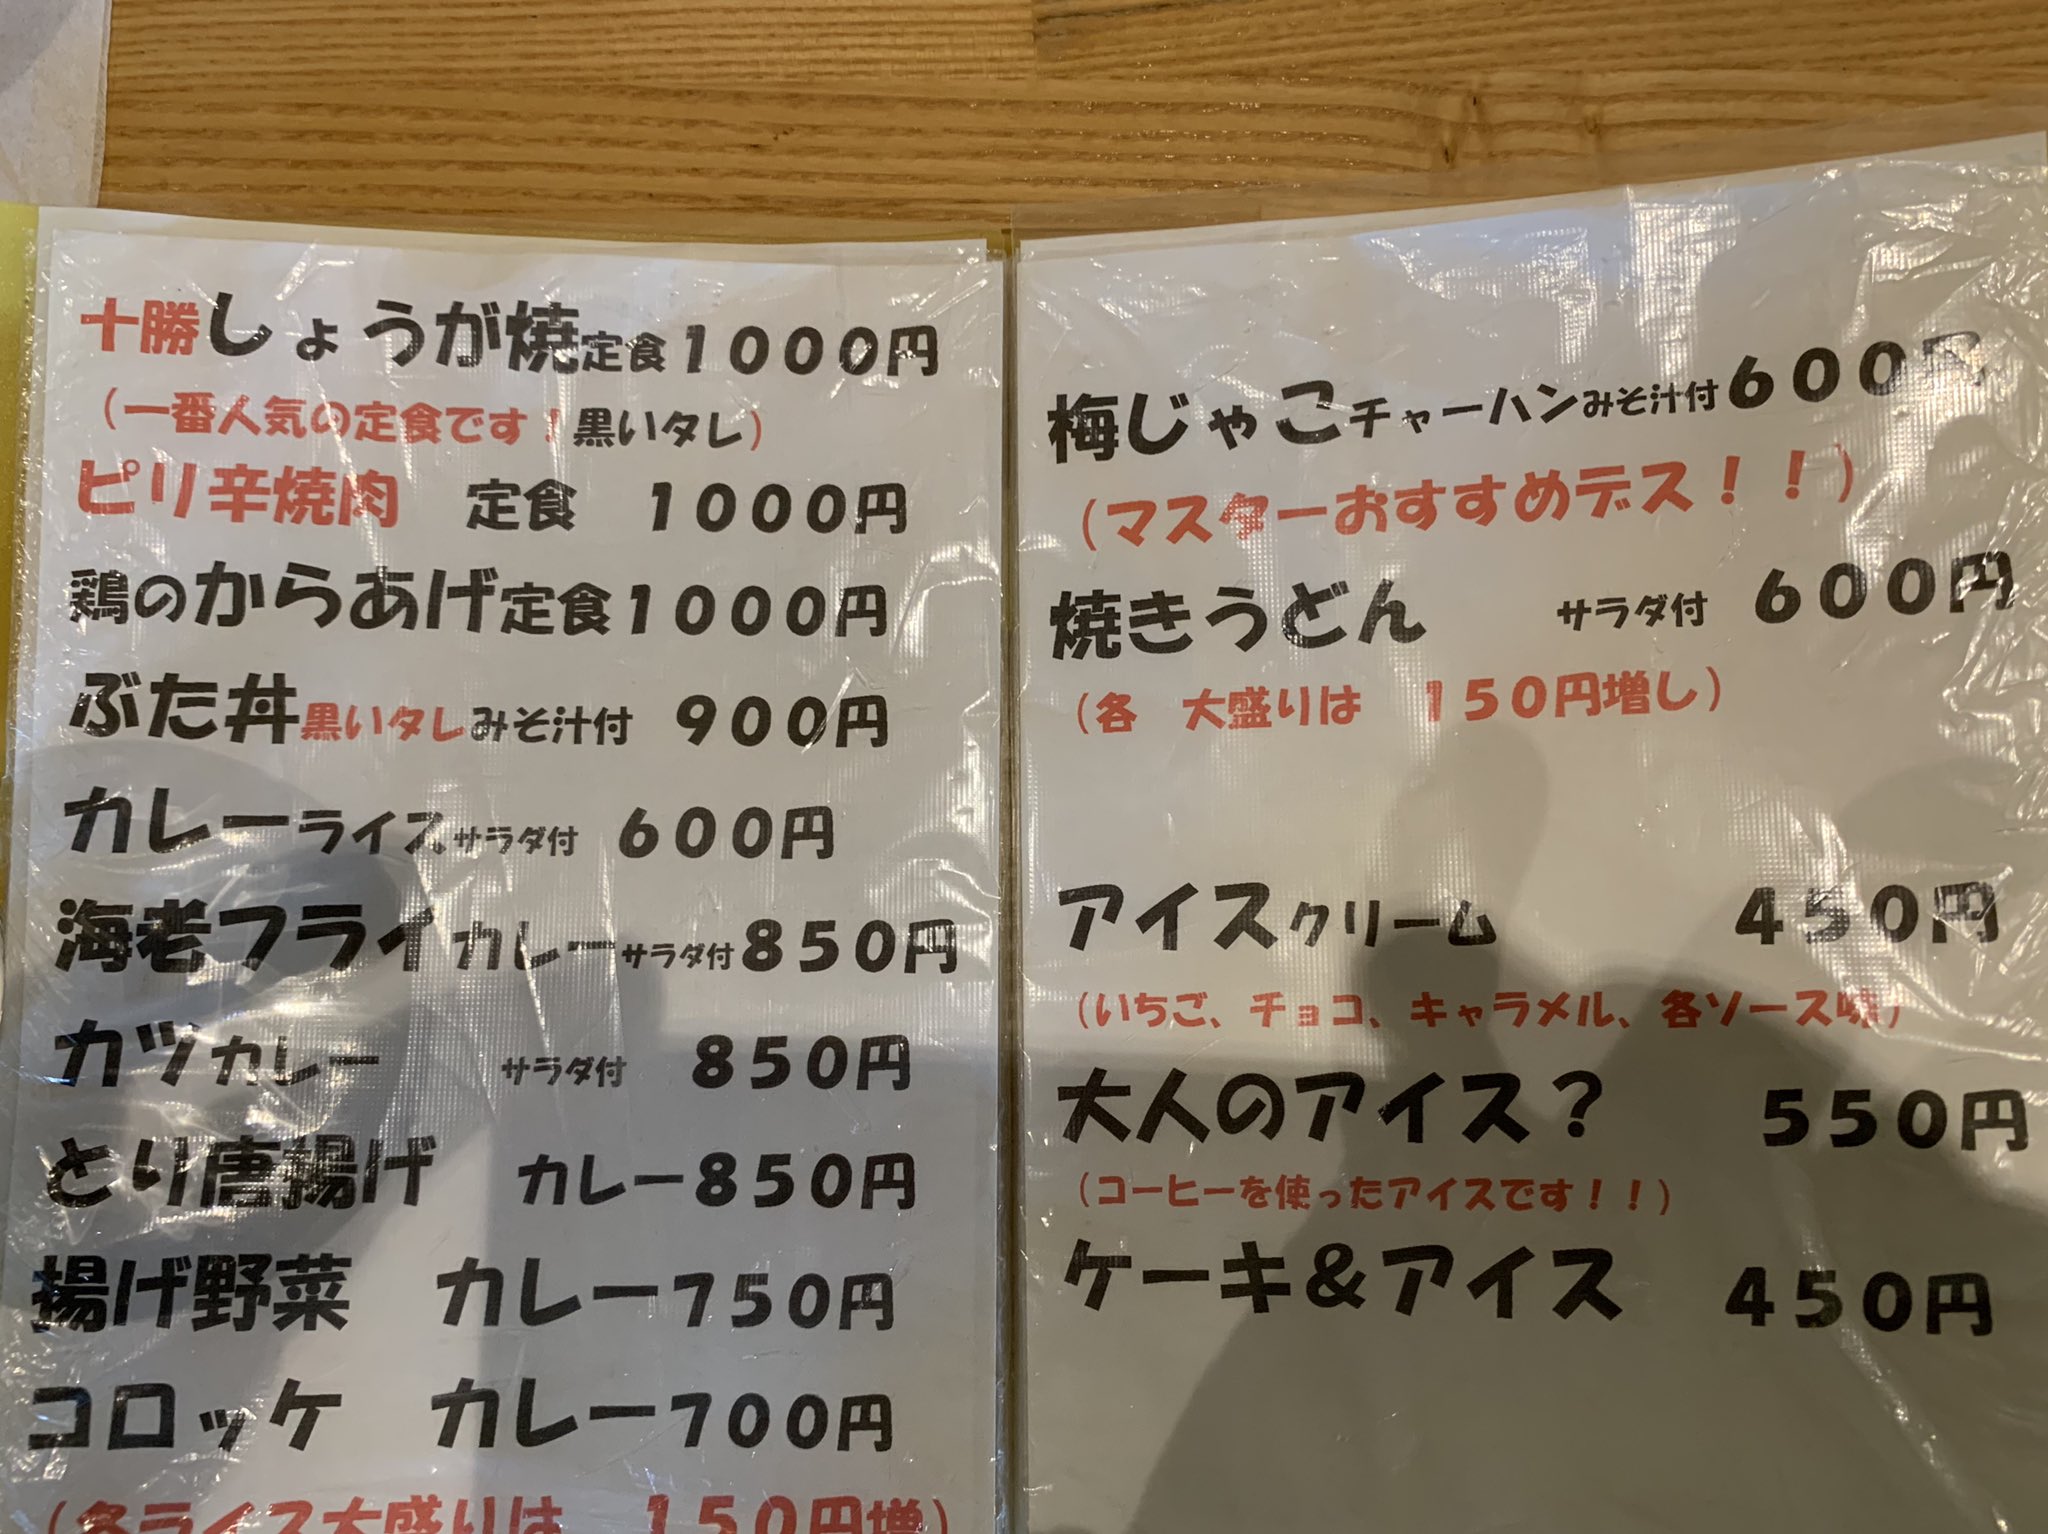 十勝しょうが焼定食1000円
(一番人気の定食です!黒いタレ)
ピリ辛焼肉 定食 1000円
鶏のからあげ定食1000円
ぶた丼黒いタレみそ汁付 900円
カレーライスサラダ付 600円
海老フライカレーサラダ付850円
カツカレー サラダ付 850円
とり唐揚げ カレー850円
揚げ野菜 カレー750円
コロッケ カレー700円
(各ライス大盛りは 150円増)
梅じゃこチャーハンみそ汁付600円
(マスターおすすめデス!!)
焼きうどん サラダ付 600円
(各 大盛りは 150円増し)
アイスクリーム 450円
(いちご、チョコ、キャラメル、各ソース味)
大人のアイス? 550円
(コーヒーを使ったアイスです!!)
ケーキ&アイス 450円